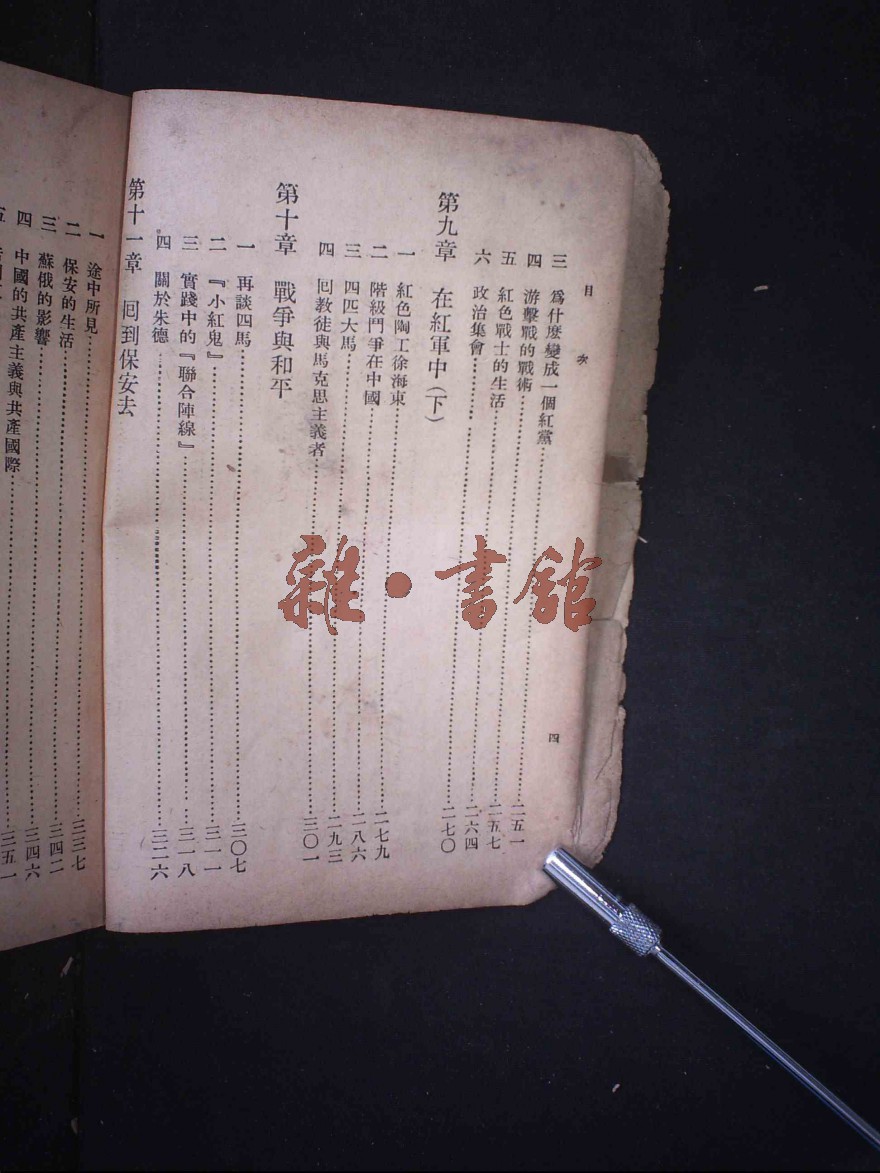 目次
三 爲什麽變成一個紅黨……二五一
四 游擊戰的戰術……二五七
五 紅色戰士的生活……二六四
六 政治集會……二七〇
第九章 在紅軍中（下）
一 紅色陶工徐海東……二七九
二 階級鬥爭在中國……二八六
三 四匹大馬……二九三
四 囘教徒與馬克思主義者……三〇一
第十章 戰爭與和平
一 再談四馬……三〇七
二 『小紅鬼』……三一一
三 實踐中的『聯合陣線』……三一八
四 關於朱德……三二六
第十一章 囘到保安去
四
一 途中所見……三三七
二 保安的生活……三四二
三 蘇俄的影響……三四六
四 中國的共產主義與共產國際……三五一
五
雜·書館